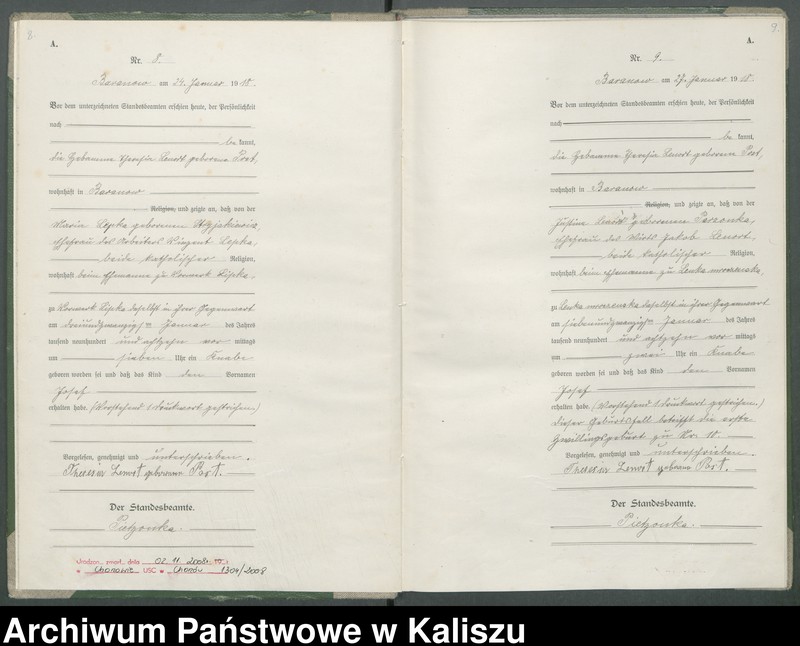 8
A.
Nr. 8.
Baranow am 24. Januar 1918.
Vor dem unterzeichneten Standesbeamten erschien heute, der Persönlichkeit
nach
be kannt,
die Hebamme Theresia Lenort geborene Port,
wohnhaft in Baranow
Religion, und zeigte an, daß von der
Maria Lepka geborenen
Ehefrau des Arbeiters Vinzent Lepka,
beide katholischer Religion,
wohnhaft beim Ehemanne zu Vorwerk Lipka,
zu Vorwerk Lipka daselbst in ihrer Gegenwart
am dreiundzwanzigsten Januar des Jahres
tausend neunhundert und achtzehn vor mittags
um sieben Uhr ein Knabe
geboren worden sei und daß das Kind den Vornamen
Josef
erhalten habe. (Vorstehend 1 Druckwort gestrichen.)
Vorgelesen, genehmigt und unterschrieben.
Theresia Lenort geborene Port.
Der Standesbeamte.
Pietzonka.
02 11 2008
USC Chorzów 1304/2008
9.
A.
Nr. 9.
Baranow am 27. Januar 1918.
Vor dem unterzeichneten Standesbeamten erschien heute, der Persönlichkeit
nach
be kannt,
die Hebamme Theresia Lenort geborene Port,
wohnhaft in Baranow
Religion, und zeigte an, daß von der
Justina Lenort geborenen Parzonka,
Ehefrau des Wirts Jakob Lenort,
beide katholischer Religion,
wohnhaft beim Ehemanne zu Lenka mroczenska,
zu Lenka mroczenska daselbst in ihrer Gegenwart
am siebenundzwanzigsten Januar des Jahres
tausend neunhundert und achtzehn vor mittags
um zwei Uhr ein Knabe
geboren worden sei und daß das Kind den Vornamen
Josef
erhalten habe. (Vorstehend 1 Druckwort gestrichen.)
Dieser Geburtsfall betrifft die erste
Zwillingsgeburt zu Nr. 10.
Vorgelesen, genehmigt und unterschrieben.
Theresia Lenort geborene Port.
Der Standesbeamte.
Pietzonka.
Archiwum Państwowe w Kaliszu